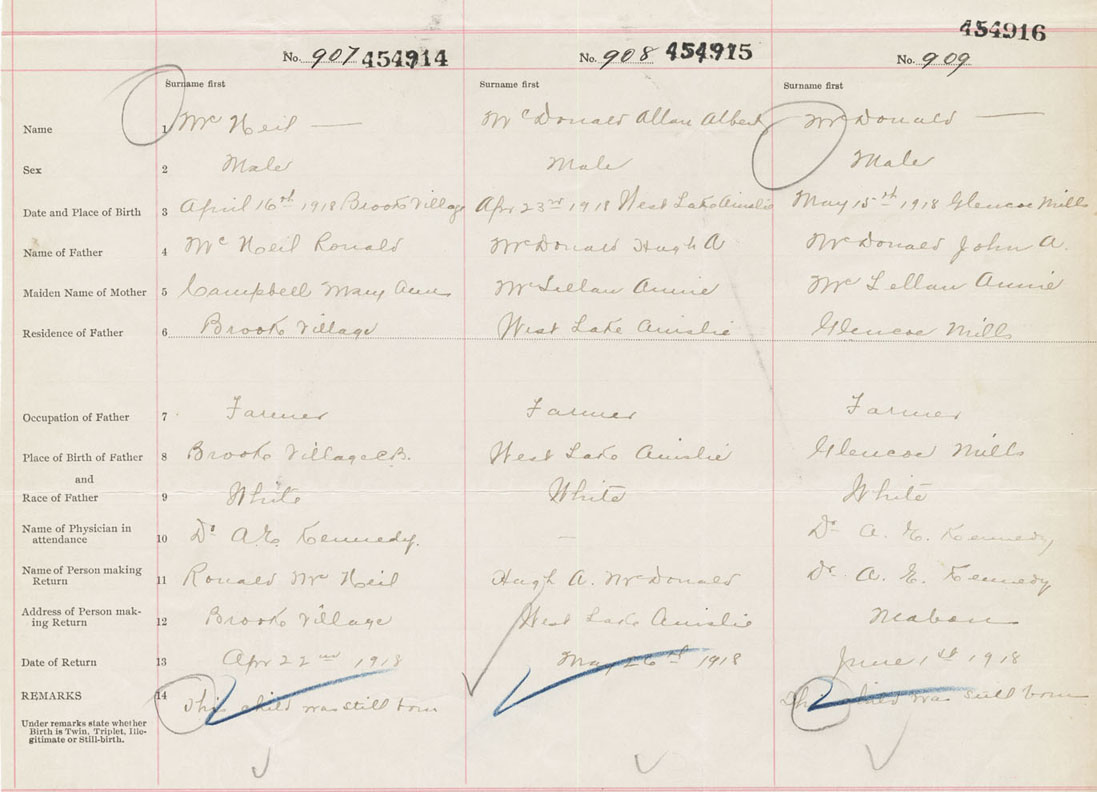 454916
No. 907 454914 No. 908 454915 No. 909
Surname first Surname first Surname first
Name 1 Mc Neil — McDonald Allan Albert McDonald —
Sex 2 Male Male Male
Date and Place of Birth 3 April 16th 1918 Brook Village Apr 23rd 1918 West Lake Ainslie May 15th 1918 Glencoe Mills
Name of Father 4 Mc Neil Ronald McDonald Hugh A McDonald John A.
Maiden Name of Mother 5 Campbell Mary Ann McLellan Annie McLellan Annie
Residence of Father 6 Brook Village West Lake Ainslie Glencoe Mills
Occupation of Father 7 Farmer Farmer Farmer
Place of Birth of Father 8 Brook Village C.B. West Lake Ainslie Glencoe Mills
and
Race of Father 9 White White White
Name of Physician in
attendance 10 Dr A.E. Kennedy. — Dr A. E. Kennedy
Name of Person making
Return 11 Ronald Mc Neil Hugh A. McDonald Dr. A. E. Kennedy
Address of Person mak-
ing Return 12 Brook Village West Lake Ainslie Mabou
Date of Return 13 Apr 22nd 1918 May 26th 1918 June 1st 1918
REMARKS 14 This child was still born This child was still born
Under remarks state whether
Birth is Twin, Triplet, Ille-
gitimate or Still-birth.